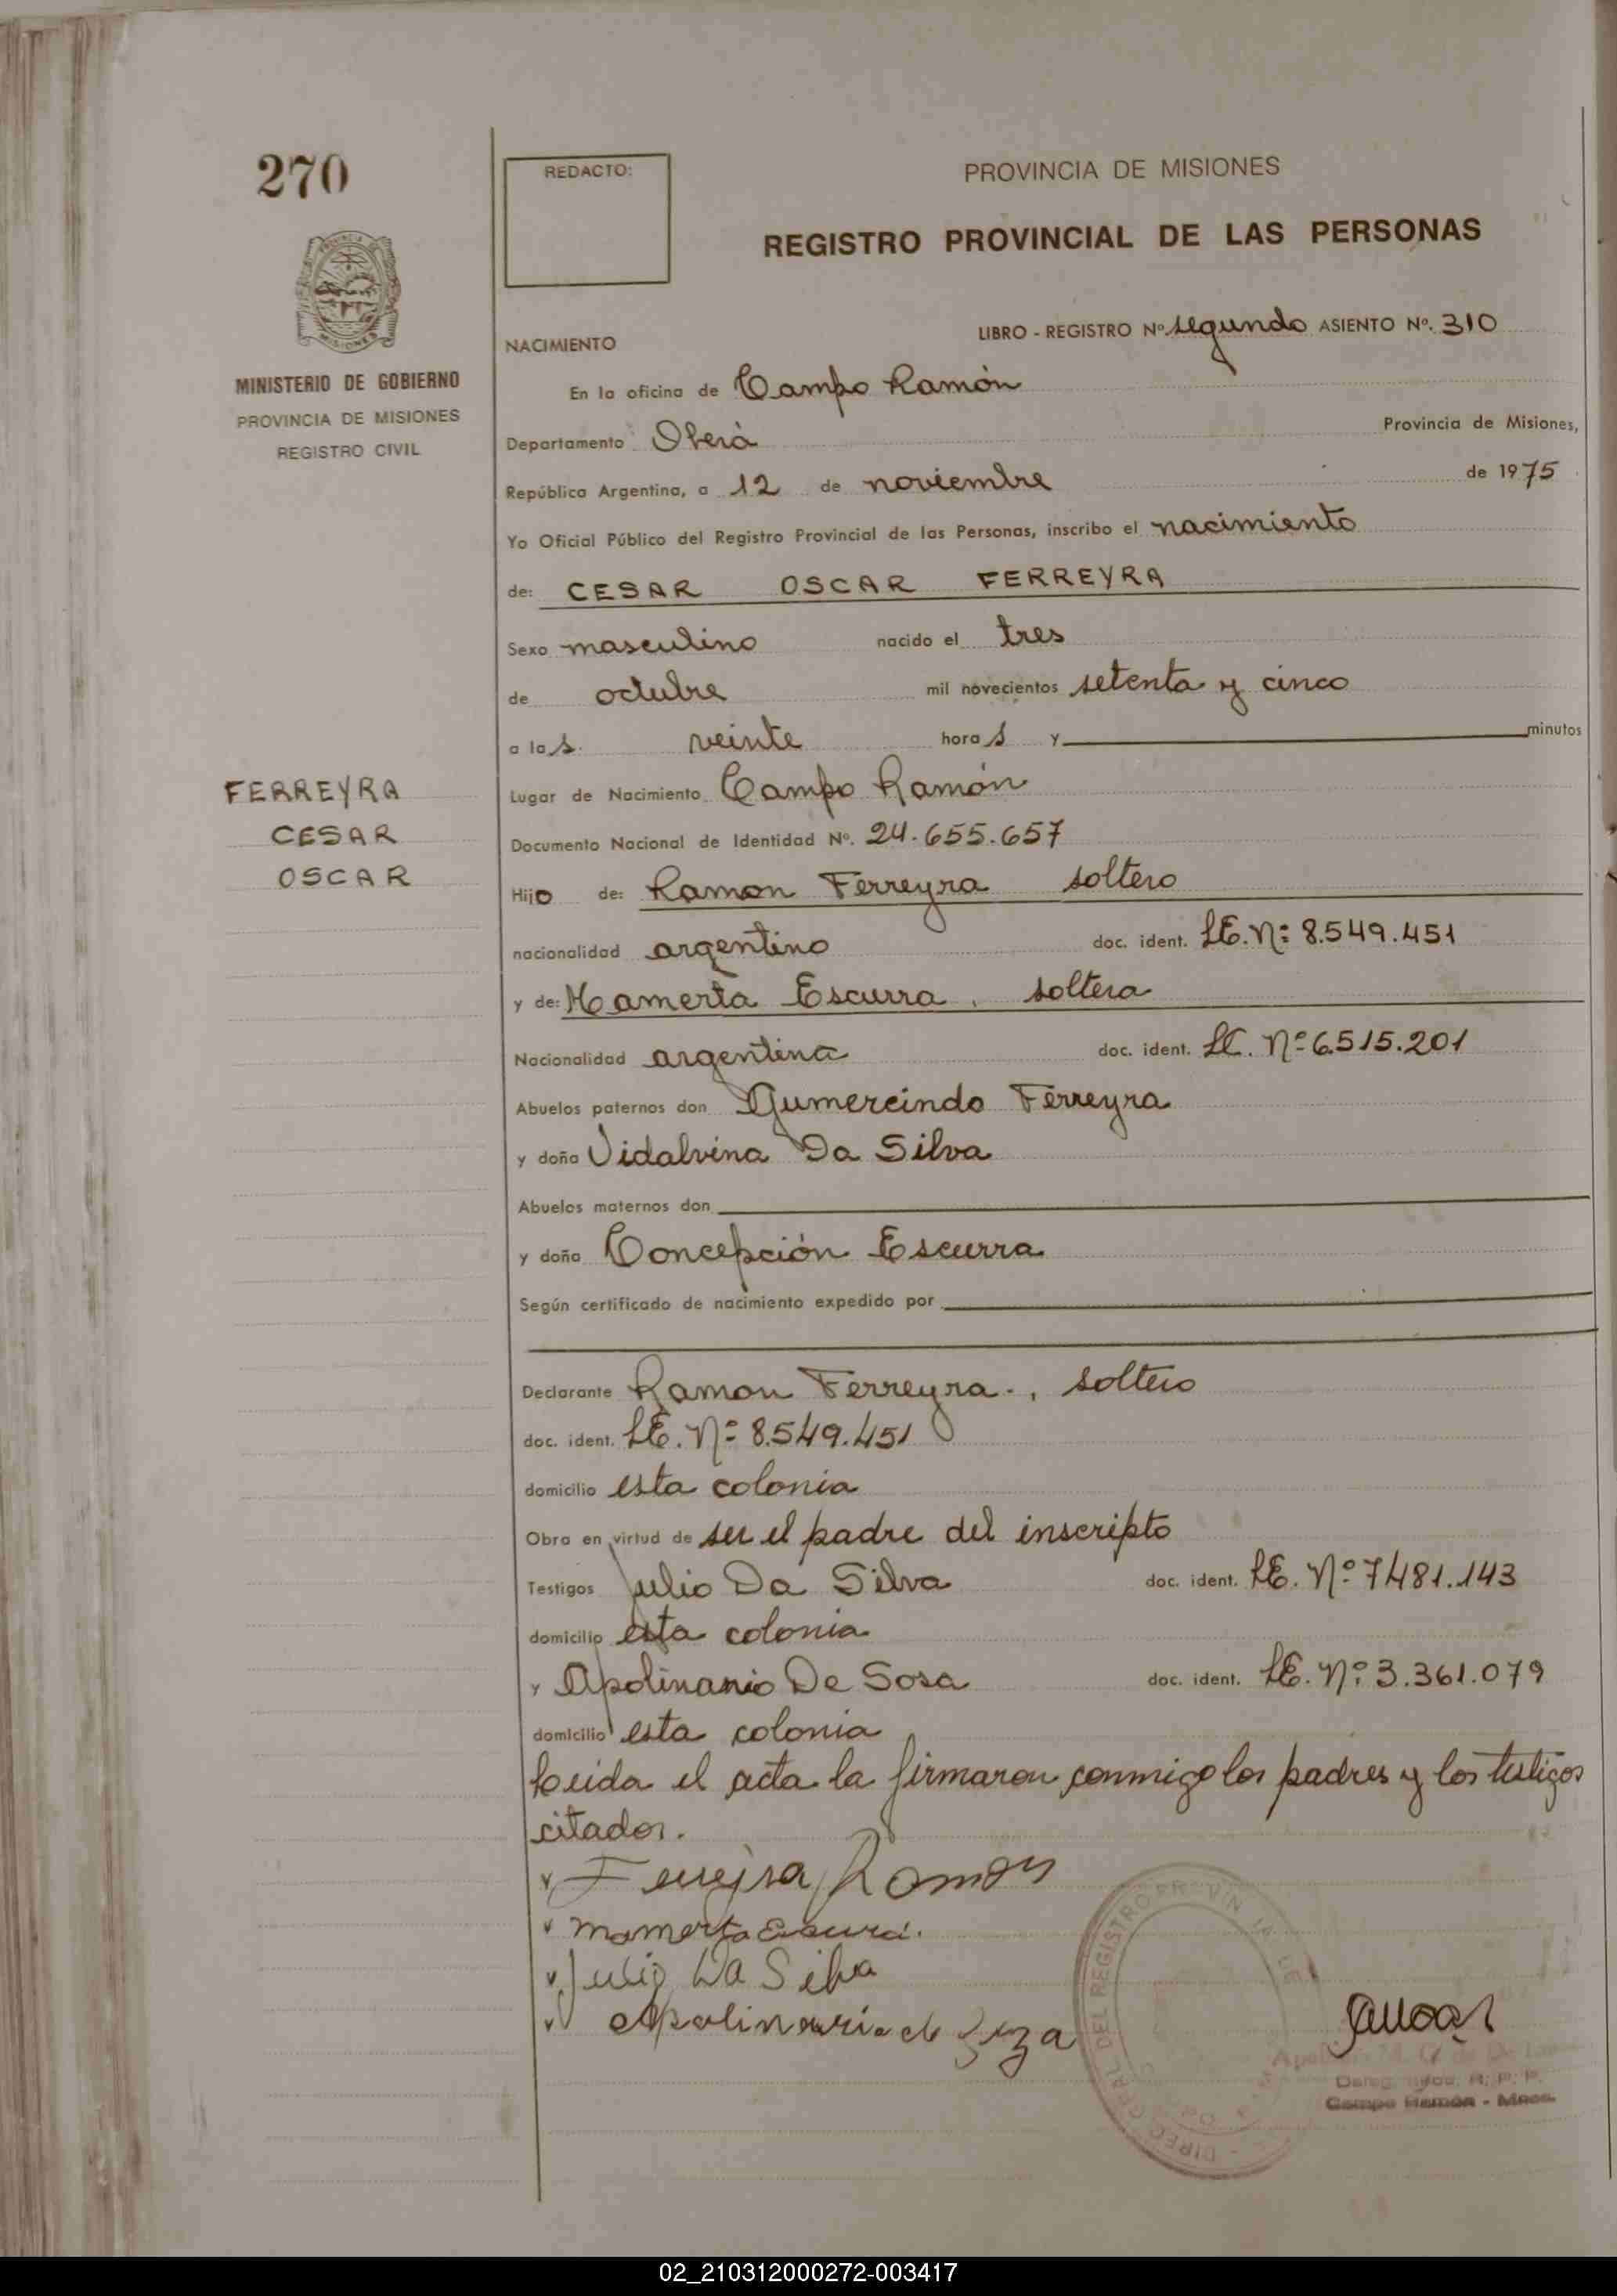 270
REDACTO:
PROVINCIA DE MISIONES
REGISTRO PROVINCIAL DE LAS PERSONAS
MINISTERIO DE GOBIERNO
PROVINCIA DE MISIONES
REGISTRO CIVIL
LIBRO - REGISTRO Nº segundo ASIENTO Nº. 310
NACIMIENTO
En la oficina de Campo Ramón
Departamento Oberá Provincia de Misiones,
República Argentina, a 12 de noviembre de 1975
Yo Oficial Público del Registro Provincial de las Personas, inscribo el nacimiento
de: CESAR OSCAR FERREYRA
Sexo masculino nacido el tres
de octubre mil novecientos setenta y cinco
a las veinte horas y minutos
FERREYRA
CESAR
OSCAR
Lugar de Nacimiento Campo Ramón
Documento Nacional de Identidad Nº. 24.655.657
Hijo de: Ramon Ferreyra soltero
nacionalidad argentino doc. ident. LE. Nº 8.549.451
y de: Mamerta Escurra, soltera
Nacionalidad argentina doc. ident. LC. Nº 6.515.201
Abuelos paternos don Gumercindo Ferreyra
y doña Vidalvina Da Silva
Abuelos maternos don
y doña Concepción Escurra
Según certificado de nacimiento expedido por
Declarante Ramon Ferreyra., soltero
doc. ident. LE. Nº 8.549.451
domicilio esta colonia
Obra en virtud de ser el padre del inscripto
Testigos Julio Da Silva doc. ident. LE. Nº 7481.143
domicilio esta colonia
y Apolinario De Sosa doc. ident. LE. Nº 3.361.079
domicilio esta colonia
Leida el acta la firmaron conmigo los padres y los testigos
citados.
v Ferreira Ramon
v Mamerta Escurra.
v Julio Da Silva
v Apolinario de Soza
REGISTRO PROVINCIAL DE
Campo Ramón - Mnes.
02_210312000272-003417